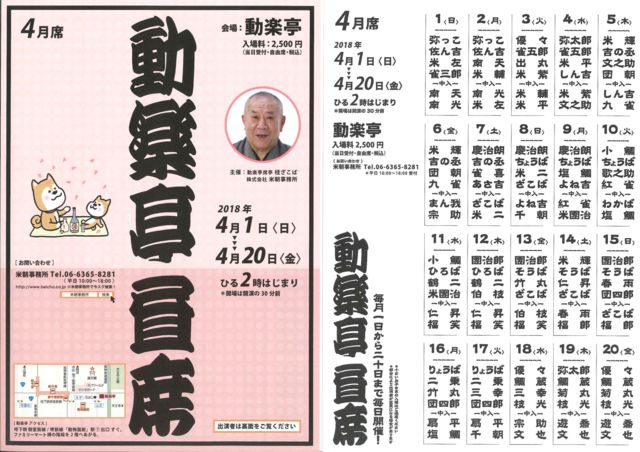 4月席
会場：動楽亭
入場料：2,500円
(当日受付・自由席・税込)
動楽亭昼席
主催：動楽亭席亭 桂ざこば
株式会社 米朝事務所
2018年
4月1日〈日〉
4月20日〈金〉
ひる2時はじまり
＊開場は開演の30分前
【お問い合わせ】
米朝事務所 Tel.06-6365-8281
(平日 10:00〜18:00)
米朝事務所
検索
[動楽亭 アクセス]
出演者は裏面をご覧ください
4月席
2018年
4月1日〈日〉
4月20日〈金〉
ひる2時はじまり
＊開場は開演の30分前
動楽亭
入場料2,500円
(当日受付・自由席・税込)
[お問い合わせ]
米朝事務所 Tel.06-6365-8281
＊平日 10:00〜18:00 受付
動楽亭昼席
毎月一日から二十日まで毎日開催！
1(日)
弥っこ
佐ん吉
米左
雀三郎
ー中入ー
南天
南光
2(月)
弥っこ
佐ん吉
南天
米輔
ー中入ー
米左
南光
3(火)
優々
雀五郎
出丸
米紫
ー中入ー
米輔
米平
4(水)
弥太郎
雀五郎
しん吉
団朝
ー中入ー
米紫
文之助
5(木)
米輝
吉の丞
文之助
団朝
ー中入ー
しん吉
雀
6(金)
米輝
吉の丞
団朝
九雀
ー中入ー
まん我
宗助
7(土)
慶治朗
吉の丞
雀喜
あさ吉
ー中入ー
ざこば
米二
8(日)
慶治朗
ちょうば
米二
ざこば
ー中入ー
よね吉
千朝
9(月)
慶治朗
ちょうば
紅雀
よね吉
ー中入ー
米団治
10(火)
小鯛
ちょうば
歌之助
紅雀
ー中入ー
わかば
塩鯛
11(水)
小鯛
ひろば
鶴二
米団治
ー中入ー
仁昇
福笑
12(木)
團治郎
ひろば
鶴二
伯枝
ー中入ー
ざこば
福笑
13(金)
團治郎
そうば
竹丸
ざこば
ー中入ー
伯枝
福笑
14(土)
米輝
そうば
仁昇
ざこば
ー中入ー
春雨
福
15(日)
團治郎
そうば
春雨
団四郎
ー中入ー
ざこば
福
16(月)
りょうば
二乗
竹丸
団四郎
ー中入ー
扇平
塩鯛
17(火)
りょうば
二乗
三幸
団四郎
ー中入ー
扇平
千朝
18(水)
優々
鯛蔵
三幸
枝光
ー中入ー
宗助
文也
19(木)
弥太郎
鯛蔵
菊丸
枝光
ー中入ー
遊喬
文也
20(金)
優々
鯛蔵
菊丸
枝光
ー中入ー
遊喬
文也